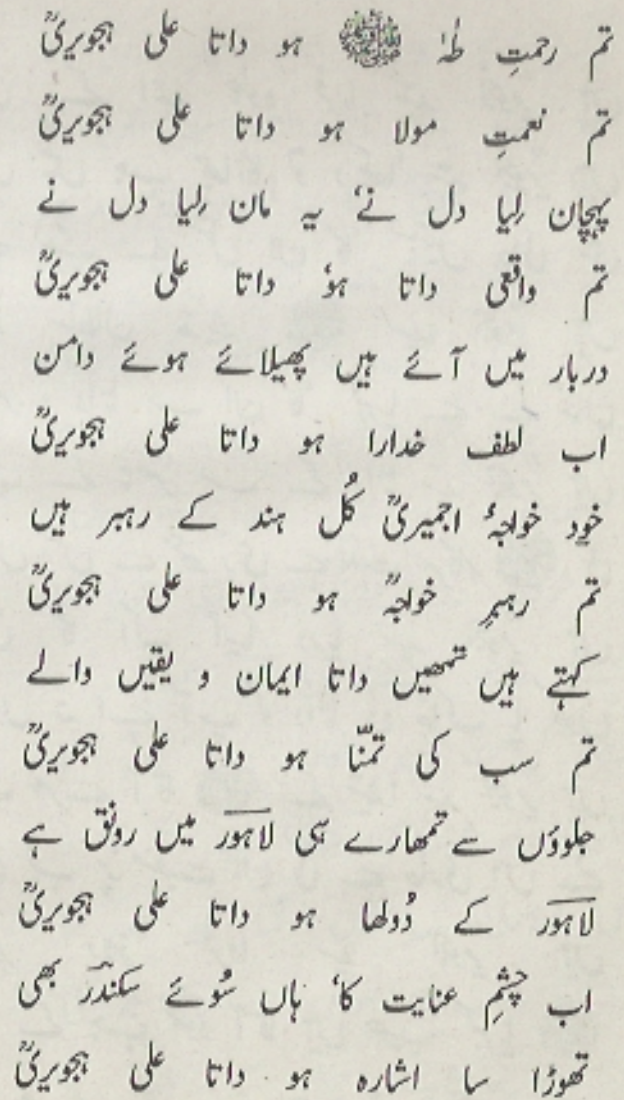 تم رحمتِ طٰہٰ ﷺ ہو داتا علی ہجویریؒ
تم نعمتِ مولا ہو داتا علی ہجویریؒ
پہچان لیا دل نے، یہ مان لیا دل نے
تم واقعی داتا ہو، داتا علی ہجویریؒ
دربار میں آئے ہیں پھیلائے ہوئے دامن
اب لطف خدارا ہو داتا علی ہجویریؒ
خود خواجۂ اجمیریؒ کُل ہند کے رہبر ہیں
تم رہبرِ خواجہؒ ہو داتا علی ہجویریؒ
کہتے ہیں تمھیں داتا ایمان و یقیں والے
تم سب کی تمنّا ہو داتا علی ہجویریؒ
جلوؤں سے تمھارے ہی لاہور میں رونق ہے
لاہور کے دُولھا ہو داتا علی ہجویریؒ
اب چشمِ عنایت کا، ہاں سُوئے سکندرؔ بھی
تھوڑا سا اشارہ ہو داتا علی ہجویریؒ